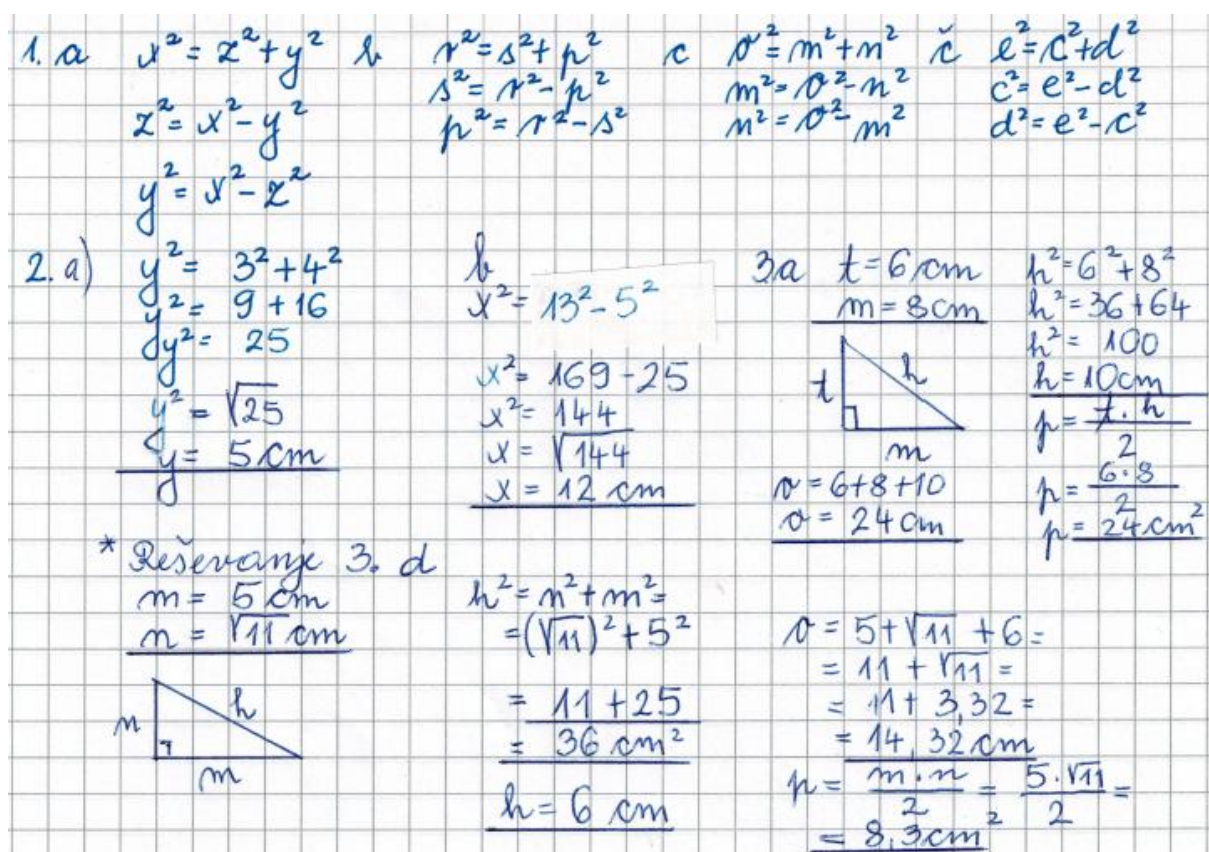 1. a x² = z² + y² b r² = s² + p² c o² = m² + n² č e² = c² + d²
s² = r² - p² m² = o² - n² c² = e² - d²
z² = x² - y² p² = r² - s² n² = o² - m² d² = e² - c²
y² = x² - z²
2. a)
y² = 3² + 4²
y² = 9 + 16
y² = 25
y² = √25
y = 5 cm
b
x² = 13² - 5²
x² = 169 - 25
x² = 144
x = √144
x = 12 cm
3a t = 6 cm
m = 8 cm
t h
m
o = 6 + 8 + 10
o = 24 cm
h² = 6² + 8²
h² = 36 + 64
h² = 100
h = 10 cm
p = t · h / 2
p = 6 · 8 / 2
p = 24 cm²
* Reševanje 3. d
m = 5 cm
n = √11 cm
n h
m
h² = n² + m² =
= (√11)² + 5²
= 11 + 25
= 36 cm²
h = 6 cm
o = 5 + √11 + 6 =
= 11 + √11 =
= 11 + 3,32 =
= 14,32 cm
p = m · n / 2 = 5 · √11 / 2 =
= 8,3 cm²